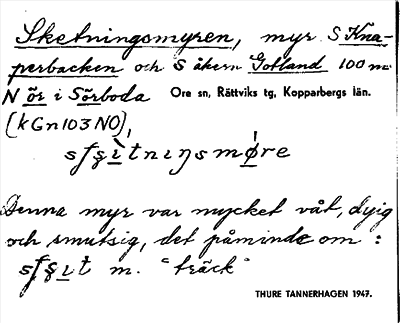 Sketningsmyren, myr S Kna-
perbacken och S åkern Gotland 100 m
N ör i Sörboda Ore sn, Rättviks tg. Kopparbergs län.
(kGn103NO),
Denna myr var mycket våt, dyig
och smutsig, det påminde om :
m. "träck"
THURE TANNERHAGEN 1947.